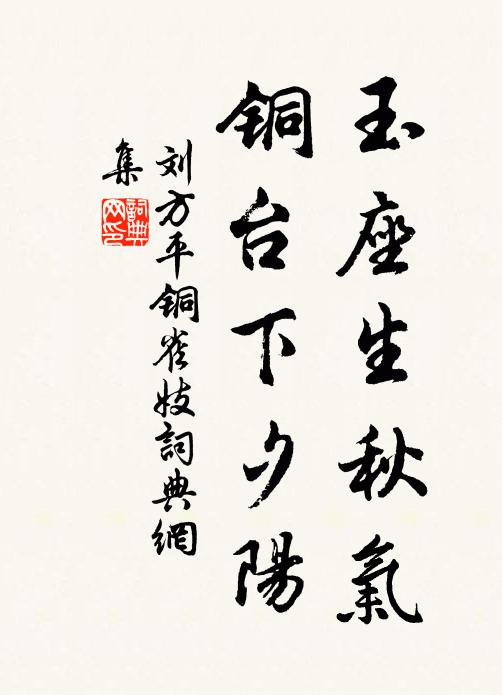 玉座生秋氣
铜台下夕陽
刘方平铜雀妓詞典網
集
詞典
网印